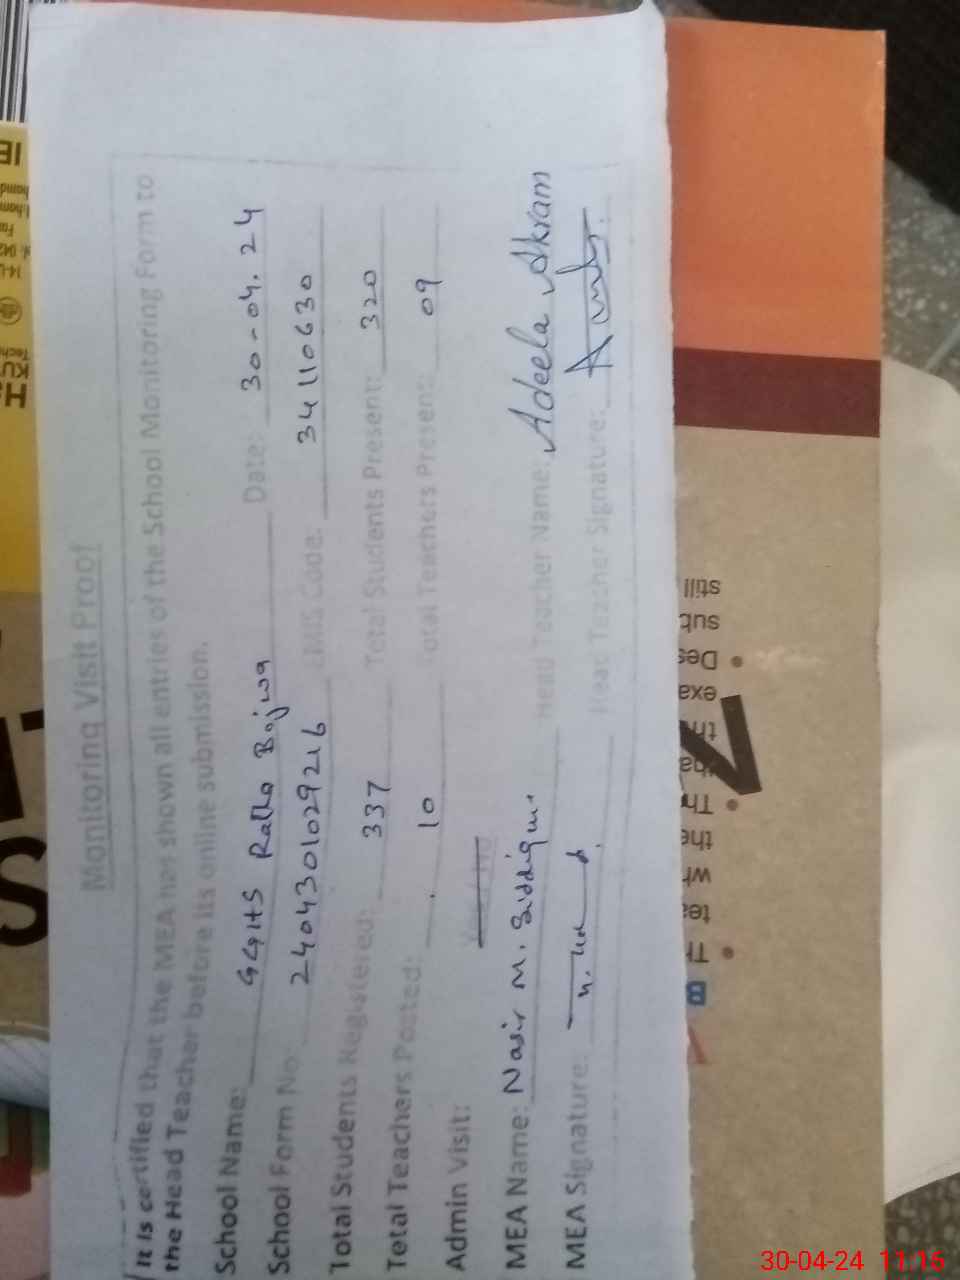 Monitoring Visit Proof
It is certified that the MEA has shown all entries of the School Monitoring Form to
the Head Teacher before its online submission.
School Name: GGHS Ratho Bajwa Date: 30-04.24
School Form No: 2404301029216 EMIS Code: 34110630
Total Students Registered: 337 Total Students Present: 320
Total Teachers Posted: 10 Total Teachers Present: 09
Admin Visit:
MEA Name: Nasir M. Siddique Head Teacher Name: Adeela Akram
MEA Signature: Head Teacher Signature:
still
sub
Des
exa
the
Th
the
wh
tea
Th
30-04-24 11:15